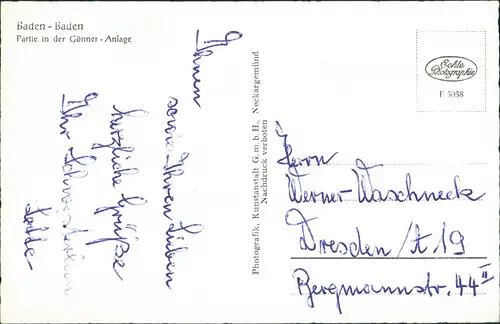 Baden - Baden
Partie in der Gönner - Anlage
Ihnen
sowie Ihren Lieben
herzliche Grüße
Ihr
Photografik, Kunstanstalt G.m.b.H., Neckargemünd
Nachdruck verboten
Echte
Photographie
E 5058
Herrn
Werner Waschneck
Dresden/A 19
Bergmannstr. 44 II